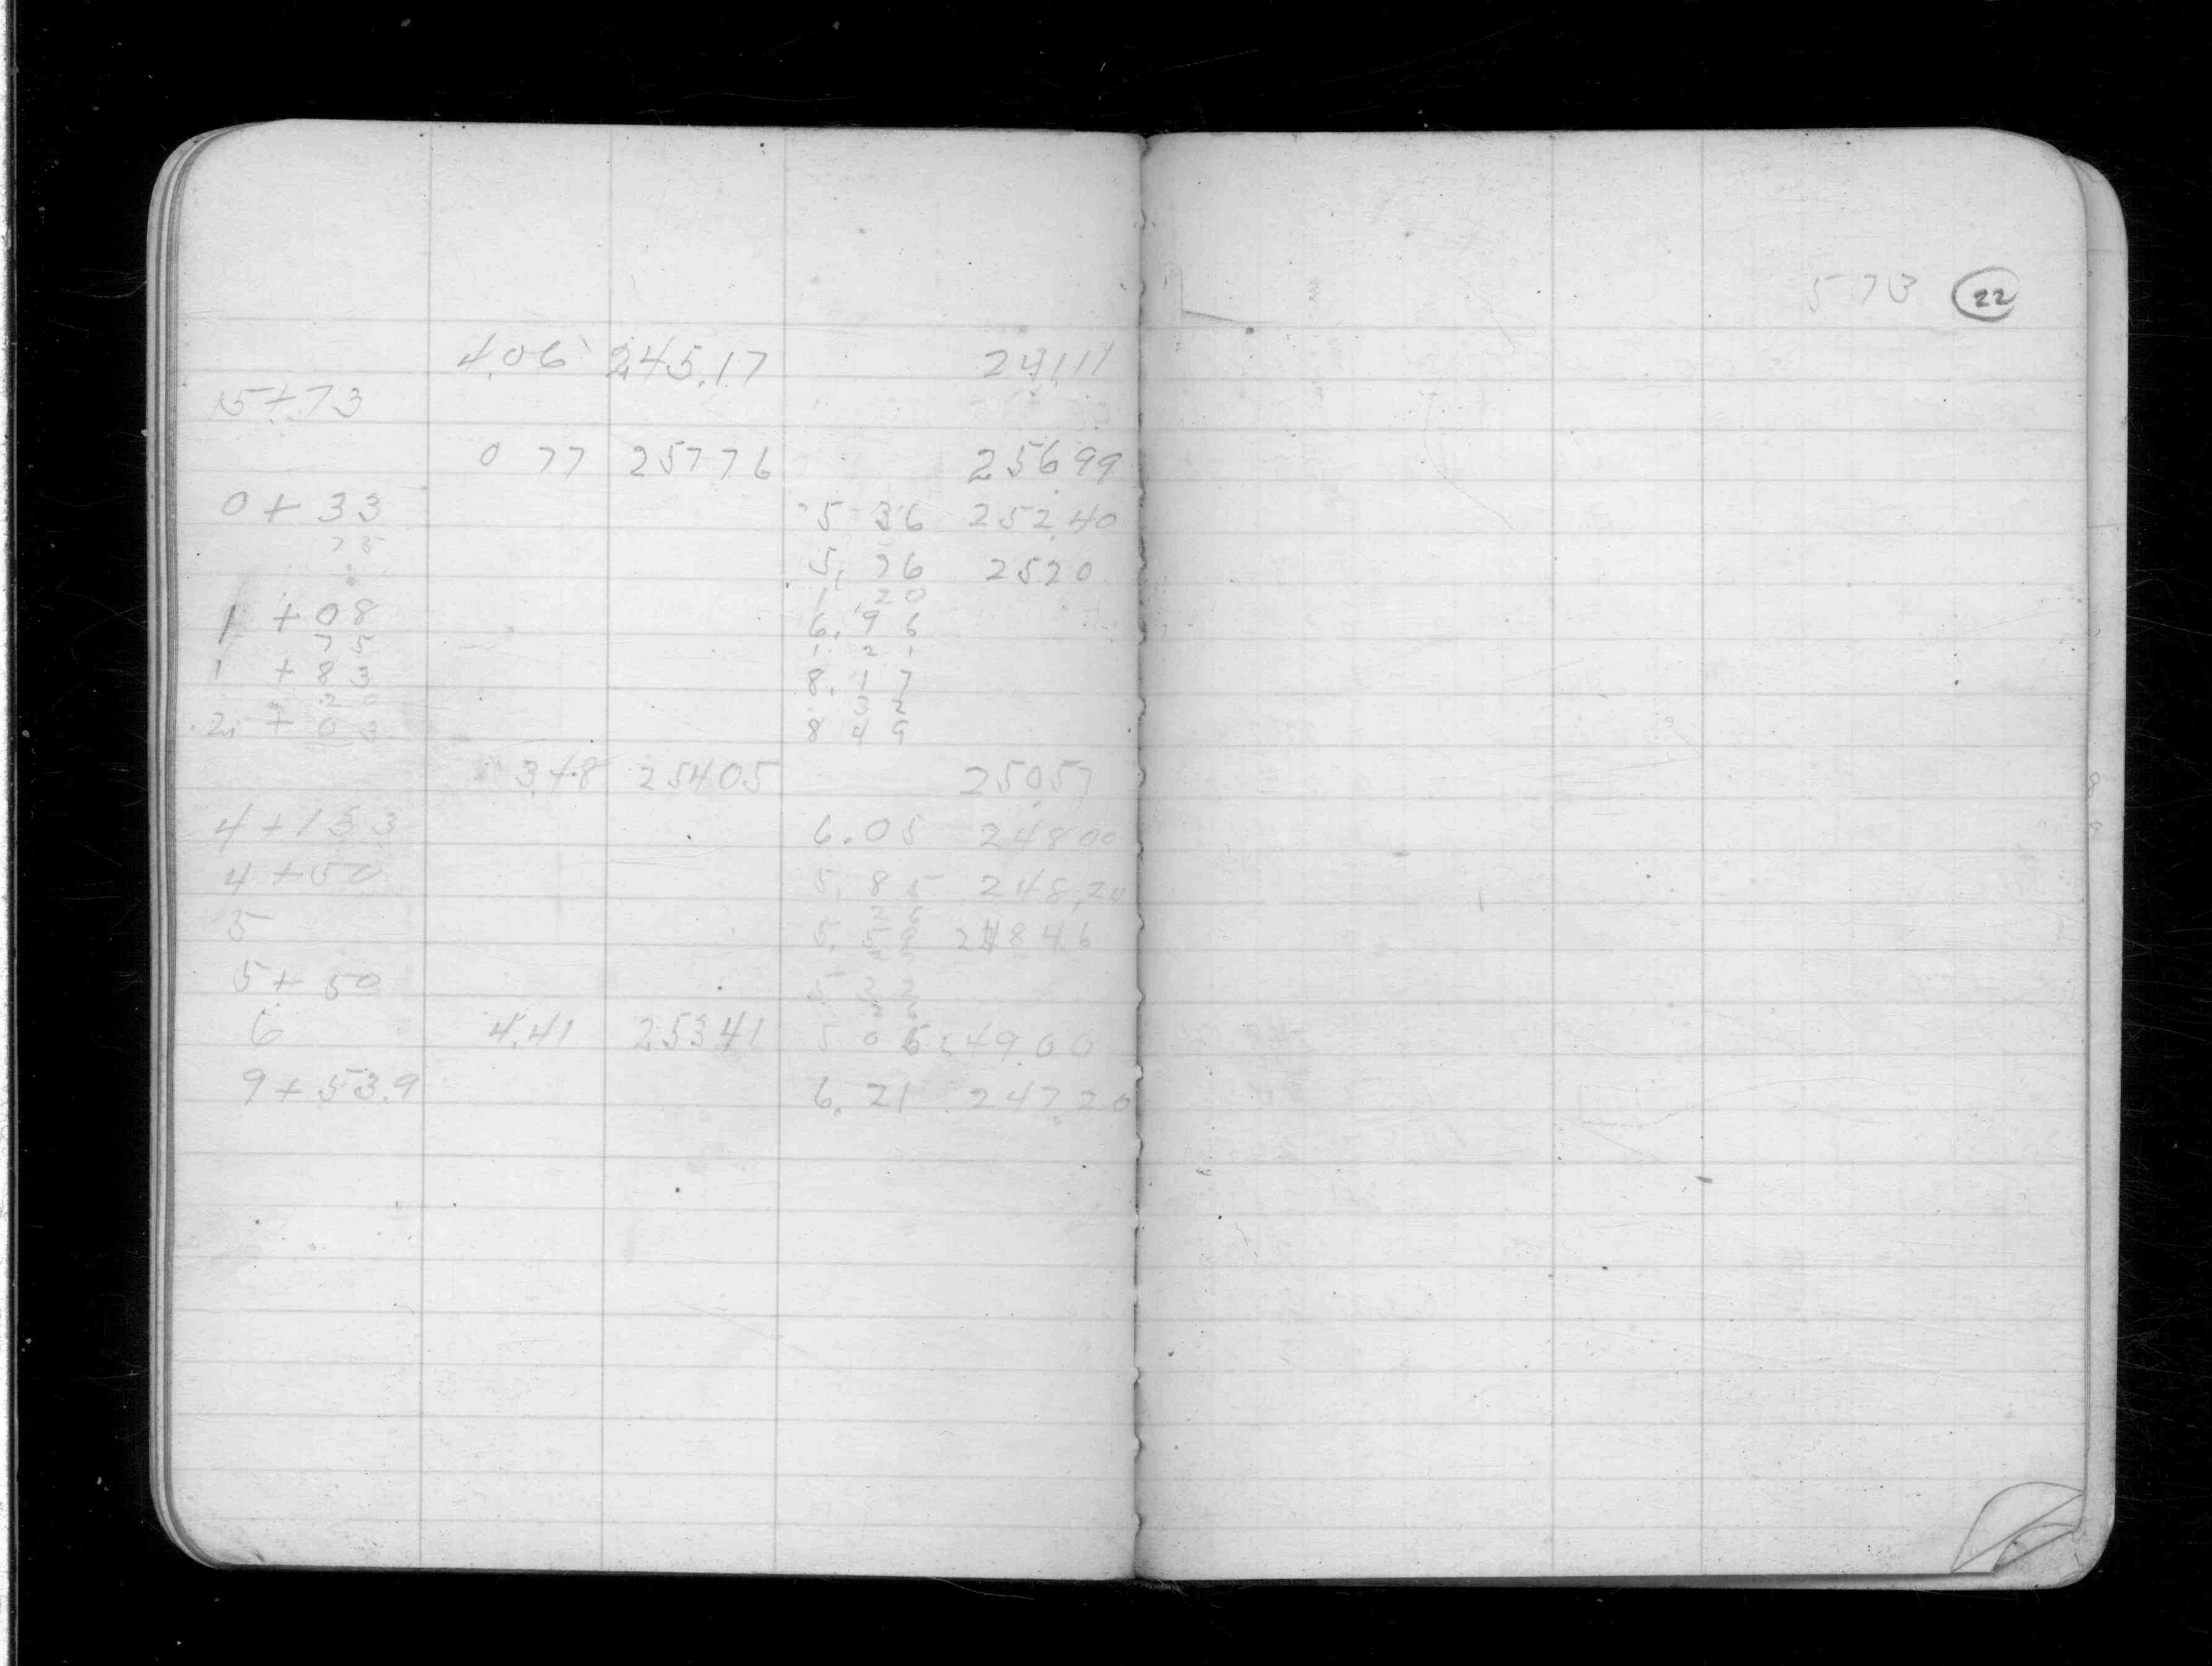 4.06 245.17 241.11
15+73
0 77 257 76 256 99
0 + 33 5 36 252.40
75 5. 76 2520
1 20
1 + 08 6. 9 6
75 1 2 1
1 + 83 8. 1 7
20 3 2
2 + 03 8 4 9
254 05 250.57
4 + 133 6.05 248 00
4 + 50 5. 85 248.20
26
5 5. 59 248 46
5 + 50 5
26
6 4.41 253 41 5 0 6 249.00
9 + 53.9 6. 21 247.20
573 22